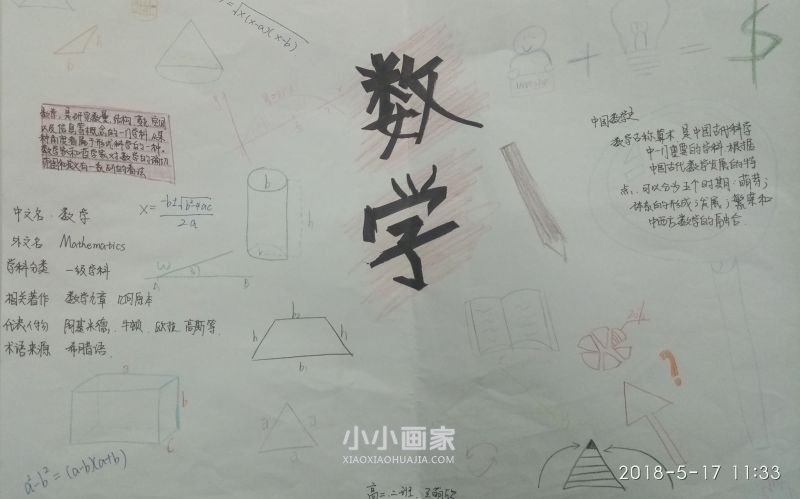 √x(x-a)(x-b)
数学
数学，是研究数量、结构、变化、空间
以及信息等概念的一门学科，从某
种角度看属于形式科学的一种。
数学家和哲学家对数学的确切
范围和定义有一系列的看法
中文名：数学
外文名 Mathematics
学科分类 一级学科
相关著作 数学九章 几何原本
代表人物 阿基米德、牛顿、欧拉、高斯等.
术语来源 希腊语.
x= -b±√b²-4ac
2a
b
h
a
b
c
A
B
b₂
h
h
b₁
a
a
a
a²-b²=(a-b)(a+b)
+
=
$
中国数学史
数学古称算术，是中国古代科学
中一门重要的学科，根据
中国古代数学发展的特
点，可以分为五个时期：萌芽；
体系的形成；发展；繁荣和
中西方数学的融合.
?
小小画家
XIAOXIAOHUAJIA.COM
2018-5-17 11:33
高二.二班.